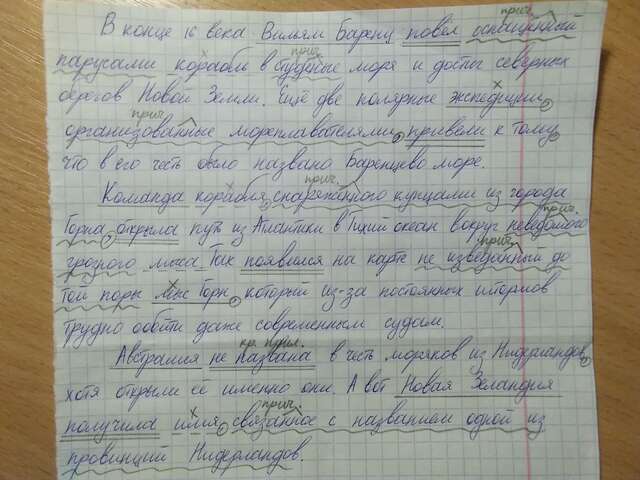 прич.
В конце 16 века Вильям Баренц повёл оснащённый
прич.
парусами корабль в студёные море и достиг северных
берегов Новой Земли. Ещё две полярные экспедиции,
прич.
организованные мореплавателями, привели к тому,
что в его честь было названо Баренцево море.
прич.
Команда корабля, снаряжённого купцами из города
прич.
Горна, открыла путь из Атлантики в Тихий океан вокруг неведомого
прич.
грозного мыса. Так появился на карте не изведанный до
той поры мыс Горн, который из-за постоянных штормов
трудно обойти даже современным судам.
кр. прил.
Австралия не названа в честь моряков из Нидерландов,
хотя открыли её именно они. А вот Новая Зеландия
прич.
получила имя, связанное с названием одной из
провинций Нидерландов.